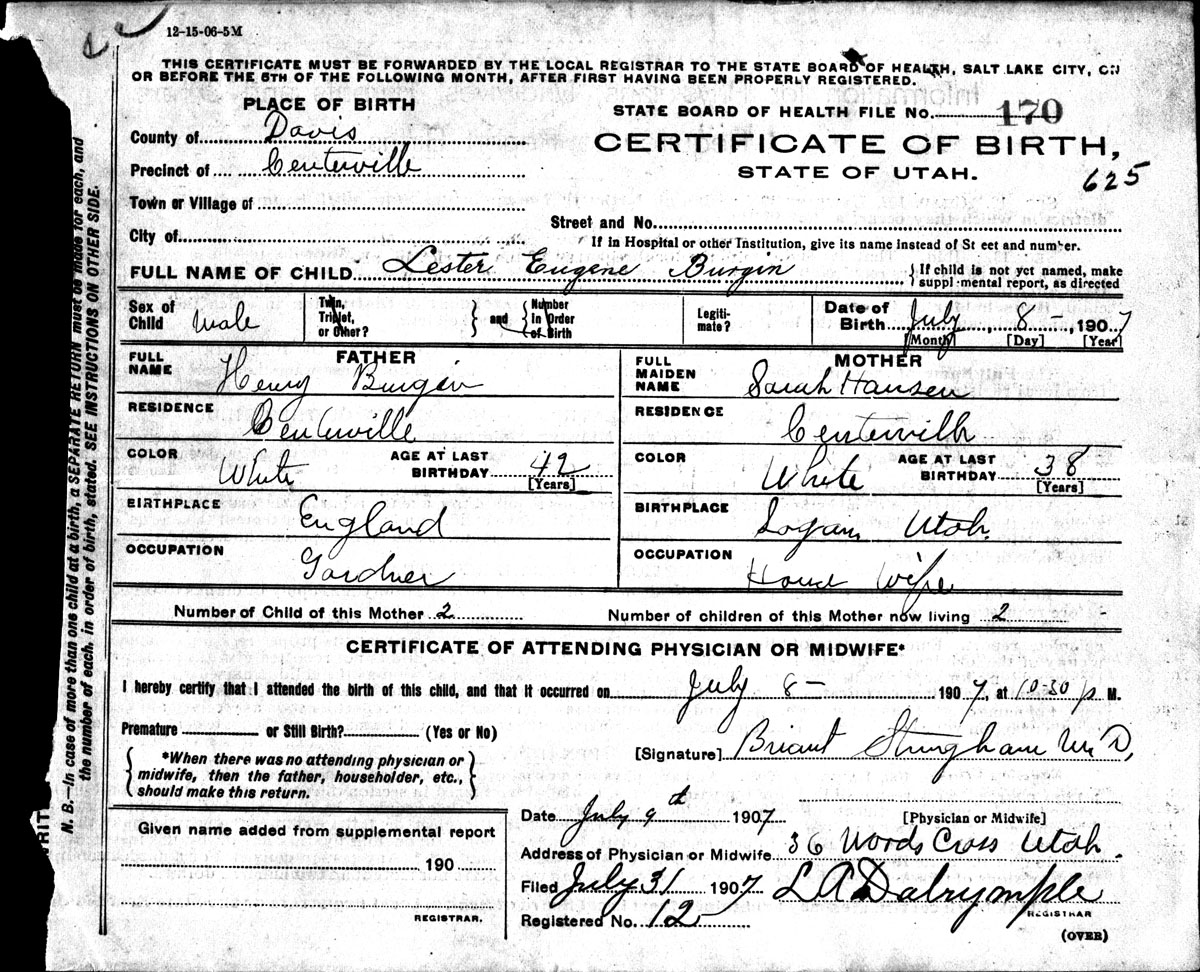 12-15-06-5M
THIS CERTIFICATE MUST BE FORWARDED BY THE LOCAL REGISTRAR TO THE STATE BOARD OF HEALTH, SALT LAKE CITY, ON
OR BEFORE THE 5TH OF THE FOLLOWING MONTH, AFTER FIRST HAVING BEEN PROPERLY REGISTERED.
PLACE OF BIRTH
STATE BOARD OF HEALTH FILE No. 170
County of Davis
CERTIFICATE OF BIRTH,
Precinct of Centerville
STATE OF UTAH.
625
Town or Village of
Street and No.
City of
If in Hospital or other Institution, give its name instead of St eet and number.
FULL NAME OF CHILD Lester Eugene Burgin
{If child is not yet named, make
suppl·mental report, as directed
Sex of Child Male
Twin, Triplet, or Other?
} and { Number in Order of Birth
Legiti-mate?
Date of Birth July 8 -, 1907
[Month] [Day] [Year]
FATHER
FULL NAME Henry Burgin
RESIDENCE Centerville
COLOR White AGE AT LAST BIRTHDAY 42
[Years]
BIRTHPLACE England
OCCUPATION Gardner
MOTHER
FULL MAIDEN NAME Sarah Hansen
RESIDENCE Centervill
COLOR White AGE AT LAST BIRTHDAY 38
[Years]
BIRTHPLACE Logan, Utah.
OCCUPATION House Wife
Number of Child of this Mother 2 Number of children of this Mother now living 2
CERTIFICATE OF ATTENDING PHYSICIAN OR MIDWIFE*
I hereby certify that I attended the birth of this child, and that it occurred on July 8 - 1907, at 10-30 p M.
Premature or Still Birth? (Yes or No)
{*When there was no attending physician or
midwife, then the father, householder, etc.,
should make this return.}
[Signature] Briant Stringham M.D,
[Physician or Midwife]
Date July 9th 1907
Address of Physician or Midwife 36 Words Cross Utah.
Given name added from supplemental report
190
REGISTRAR.
Filed July 31 1907 L A Dalrymple
REGISTRAR
Registered No. 12
(OVER)
N. B.—In case of more than one child at a birth, a SEPARATE RETURN must be made for each, and
the number of each, in order of birth, stated. SEE INSTRUCTIONS ON OTHER SIDE.